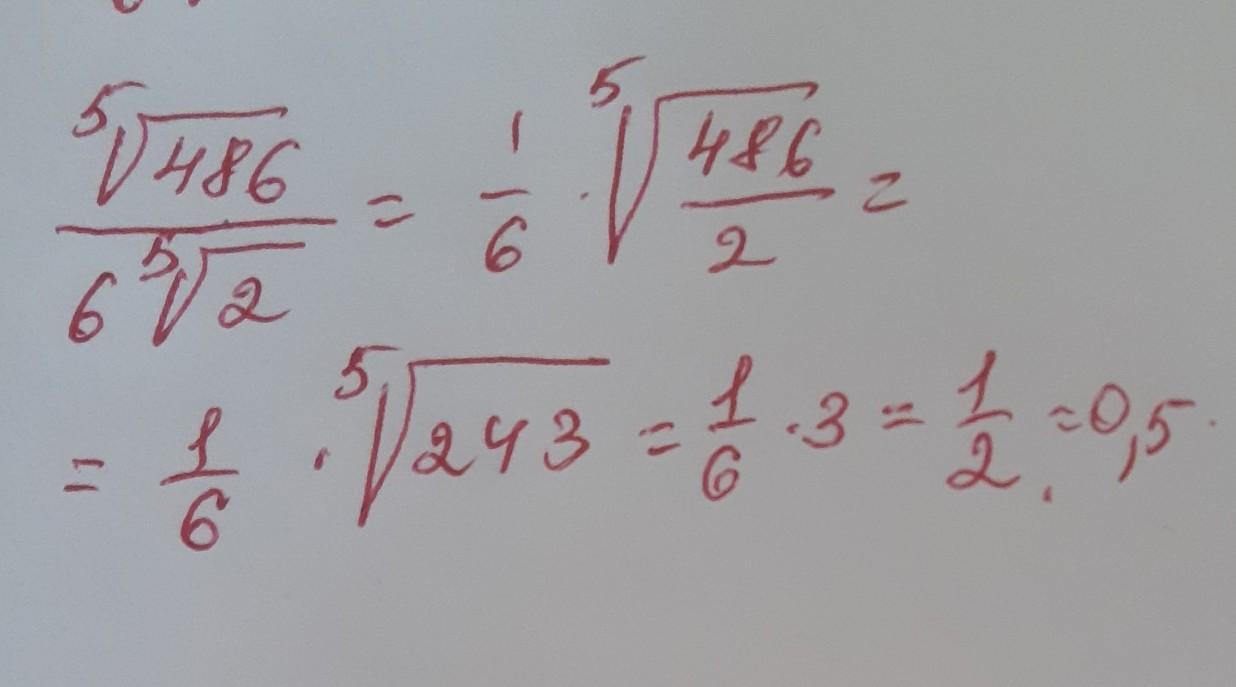 ⁵√486 / 6 ⁵√2 = 1/6 · ⁵√(486/2) =
= 1/6 · ⁵√243 = 1/6 · 3 = 1/2 = 0,5.